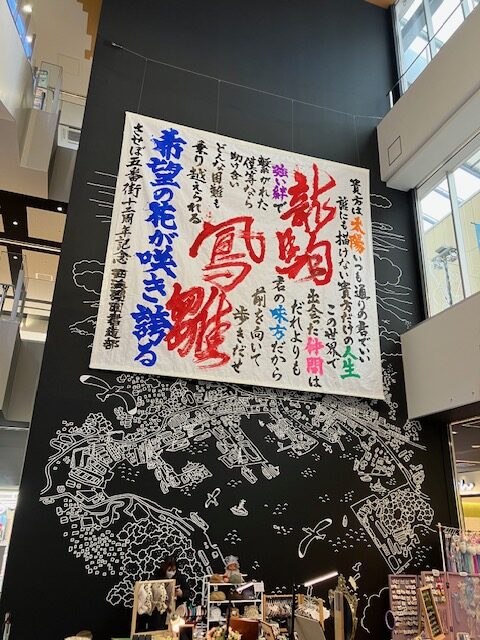 貴方は太陽いつも通りの君でいい
誰にも描けない貴方だけの人生
この世界で
出会った仲間は
だれよりも
君の味方だから
前を向いて
歩きだせ
龍駒
鳳雛
強い絆で
繋がれた
僕等なら
助け合い
どんな困難も
乗り越えられる
希望の花が咲き誇る
させぼ五番街十二周年記念
書道部